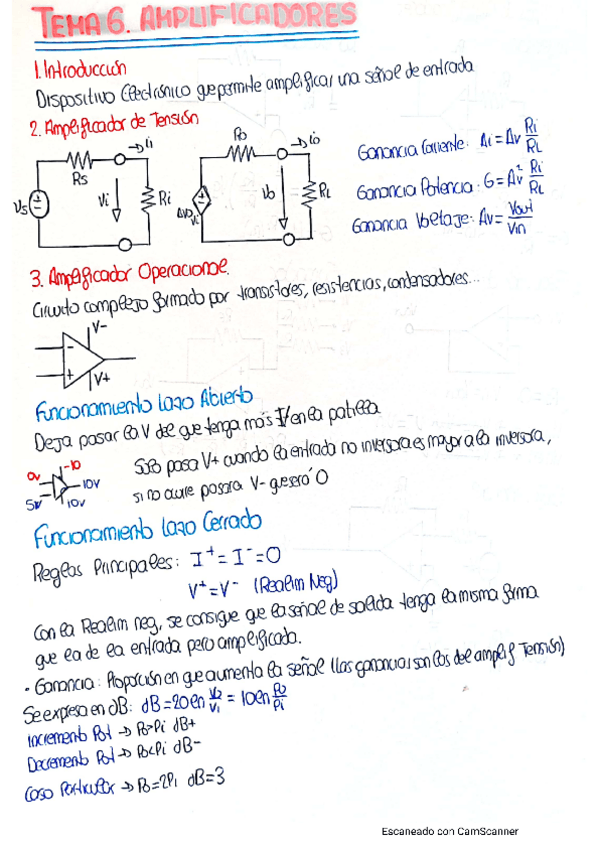 TEMA 6. AMPLIFICADORES
1. Introducción
Dispositivo Electrónico que permite amplificar una señal de entrada
2. Amplificador de Tensión
Vs Rs i1 Vi Ri
Avo Vi Ro io Vo RL
Ganancia Corriente: Ai = Av Ri/RL
Ganancia Potencia: G = Av² Ri/RL
Ganancia Voltaje: Av = Vout/Vin
3. Amplificador Operacional.
Circuito complejo formado por transistores, resistencias, condensadores...
V-
- +
V+
Funcionamiento Lazo Abierto
Deja pasar la V del que tenga más V en la patilla
0V -10 10V 5V 10V
Solo pasa V+ cuando la entrada no inversora es mayor a la inversora,
si no ocurre pasara V- que será 0
Funcionamiento Lazo Cerrado
Reglas Principales: I⁺ = I⁻ = 0
V⁺ = V⁻ (Realim Neg)
Con la Realim neg, se consigue que la señal de salida tenga la misma forma
que la de la entrada pero amplificada.
· Ganancia: Proporción en que aumenta la señal (las ganancias son las del amplif Tensión)
Se expresa en dB: dB = 20 ln V2/V1 = 10 ln Po/Pi
Incremento Pot → Po>Pi dB+
Decremento Pot → Po<Pi dB-
Caso Particular → Po=2Pi dB=3
Escaneado con CamScanner